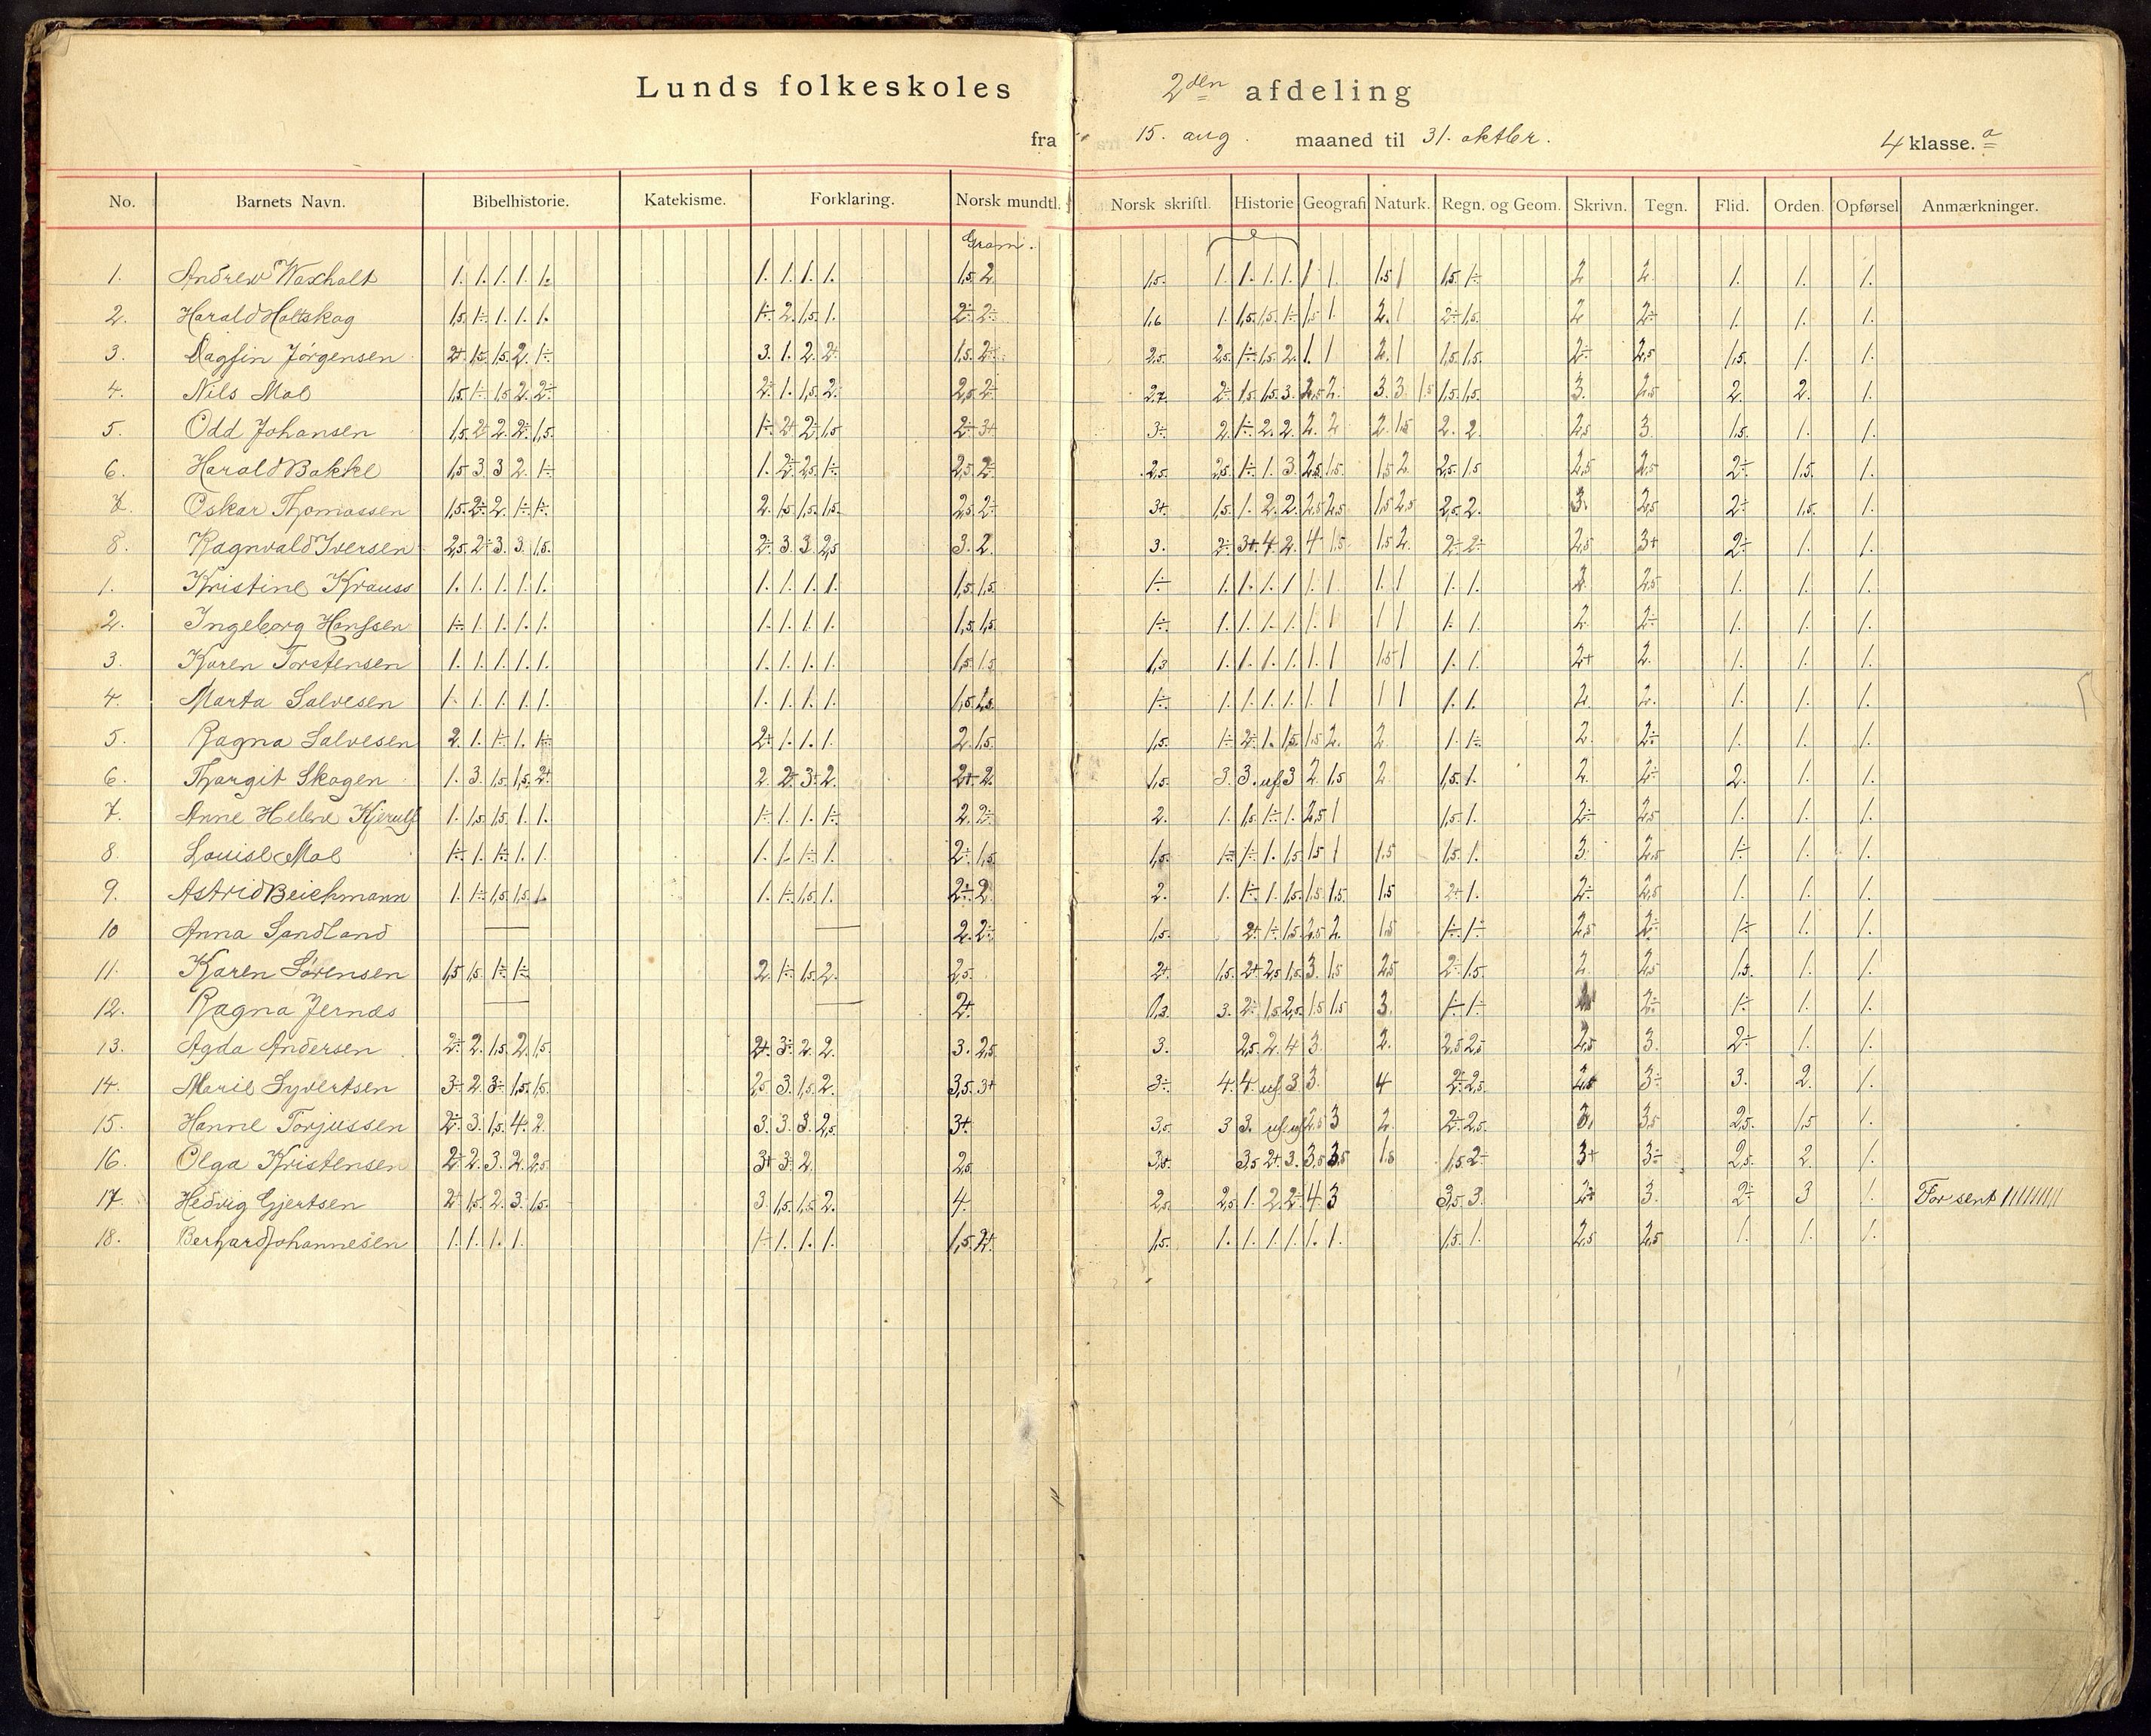 Lunds folkeskoles 2den afdeling
fra 15. aug. maaned til 31. oktbr. 4 klasse. a
No. Barnets Navn. Bibelhistorie. Katekisme. Forklaring. Norsk mundtl. Norsk skriftl. Historie Geografi Naturk. Regn. og Geom. Skrivn. Tegn. Flid. Orden. Opførsel Anmærkninger.
Gram.
1. Andrew Waxholt 1. 1. 1. 1. 1. 1. 1. 1. 1. 1,5. 2 1,5. 1. 1. 1. 1. 1 1. 1.5 1 1,5. 1÷ 2 2. 1. 1. 1.
2. Harald Holtskog 1,5. 1÷ 1. 1. 1. 1÷ 2. 1,5. 1. 2÷ 2÷ 1,6 1. 1,5. 1,5. 1÷ 1,5 1. 2. 1 2÷ 1,5. 2 2÷ 1. 1. 1.
3. Dagfin Jørgensen 2+ 1,5. 1,5. 2. 1÷ 3. 1. 2. 2+ 1,5. 2÷ 2,5. 2,5. 1÷ 1,5. 2. 1. 1 2. 1 1,5. 1,5. 2÷ 2,5 1,5. 1. 1.
4. Nils Mol 1,5. 1÷ 1,5 2. 2÷ 2÷ 1. 1,5. 2÷ 2,5. 2÷ 2,7. 2÷ 1,5. 1,5. 3. 2,5 2. 3. 3. 1.5 1,5. 1,5. 3. 2,5 2. 2. 1.
5. Odd Johansen 1,5. 2÷ 2. 2÷ 1,5. 1÷ 2+ 2÷ 1,5 2÷ 3+ 3÷ 2. 1÷ 2. 2. 2. 2 2. 1.5 2. 2. 2,5 3. 1,5. 1. 1.
6. Harald Bakke 1,5 3. 3 2. 1÷ 1. 2÷ 2,5. 1÷ 2,5. 2÷ 2,5. 2,5. 1÷ 1. 3. 2,5. 1,5. 1,5 2. 2,5. 1,5 2,5 2,5 2÷ 1,5. 1.
7. Oskar Thomassen 1,5. 2÷ 2. 1÷ 1÷ 2. 1,5 1,5. 1,5. 2,5. 2÷ 3+. 1,5. 1. 2. 2. 2,5 2,5. 1,5 2,5 2,5. 2. 3. 2,5 2÷ 1,5. 1.
8. Ragnvald Iversen 2,5. 2÷ 3. 3. 1,5. 2÷ 3. 3. 2,5 3. 2. 3. 2÷ 3+ 4. 2. 4 1,5. 1,5 2. 2÷ 2÷ 2,5 3+ 2÷ 1. 1.
1. Kristine Krauss 1. 1. 1. 1. 1. 1. 1. 1. 1. 1,5. 1,5. 1÷ 1. 1. 1. 1 1. 1. 1. 1 1. 1. 2. 2,5 1. 1. 1.
2. Ingeborg Hanssen 1÷ 1. 1. 1. 1. 1. 1. 1. 1. 1,5. 1,5. 1÷ 1. 1. 1. 1. 1. 1 1 1 1. 1. 2. 2÷ 1. 1. 1.
3. Karen Torstensen 1. 1. 1. 1. 1. 1. 1. 1. 1. 1,5. 1,5 1,3 1. 1. 1. 1. 1. 1 1.5 1 1. 1. 2+ 2. 1. 1. 1.
4. Marta Salvesen 1. 1. 1. 1. 1. 1. 1. 1. 1. 1,5. 1,5. 1÷ 1. 1. 1. 1. 1. 1 1 1 1. 1. 2. 2. 1. 1. 1.
5. Ragna Salvesen 2. 1. 1÷ 1. 1÷ 2+ 1. 1. 1. 2. 1,5. 1,5. 1÷ 2÷ 1. 1,5. 1,5 2. 2. 1. 1÷ 2. 2÷ 1. 1. 1.
6. Thargit Skogen 1. 3. 1,5. 1,5. 2+ 2. 2+ 3÷ 2. 2+ 2. 1,5. 3. 3. uf. 3 2. 1,5 2. 1,5. 1. 2. 2÷ 2. 1. 1.
7. Anne Helene Kjerulf 1. 1,5. 1,5. 1. 1. 1÷ 1. 1. 1÷ 2. 2÷ 2. 1. 1,5. 1÷ 1. 2,5 1 1,5. 1. 2÷ 2,5 1. 1. 1.
8. Louise Mol 1÷ 1. 1÷ 1. 1. 1. 1. 1÷ 1. 2÷ 1,5 1,5. 1÷ 1÷ 1. 1,5 1,5 1 1.5 1,5. 1. 3. 2,5 1÷ 1. 1.
9. Astrid Beichmann 1. 1÷ 1,5. 1,5. 1. 1. 1÷ 1,5. 1. 2÷ 2. 2. 1. 1÷ 1. 1,5. 1,5 1,5. 1.5 2+ 1. 2÷ 2,5 1. 1. 1.
10 Anna Sandland — — 2. 2÷ 1,5. 2+ 1÷ 1,5. 2,5 2. 1.5 1÷ 1÷ 2,5 2÷ 1÷ 1. 1.
11. Karen Sørensen 1,5 1,5. 1÷ 1÷ 2. 1÷ 1,5. 2. 2,5. 2+. 1,5. 2+ 2,5 1,5. 3. 1,5 2,5 2÷ 1,5 2. 2,5 1,5. 1. 1.
12. Ragna Jernæs — — 2+. 1,3. 3. 2÷ 1,5 2,5. 1,5 1,5 3. 1÷ 1÷ 2÷ 1÷ 1. 1.
13. Agda Andersen 2÷ 2. 1,5. 2. 1,5. 2+. 3÷ 2. 2. 3. 2,5. 3. 2,5. 2. 4 3. 2. 2,5 2,5 2,5 3. 2÷ 1. 1.
14. Marie Syvertsen 3÷ 2. 3÷ 1,5. 1,5. 2,5 3. 1,5. 2. 3,5. 3+ 3÷ 4. 4 uf. 3 3. 4 2÷ 2,5. 2,5 3÷ 3. 2. 1.
15. Hanne Torjussen 2÷ 3. 1,5. 4. 2. 3. 3. 3. 2,5. 3+. 3,5. 3 3. uf. uf. 2,5 3 2. 2÷ 2,5. 3. 3,5 2,5. 1,5 1.
16. Olga Kristensen 2÷ 2. 3. 2. 2,5. 3+ 3÷ 2. 2,5. 3,5. 3,5 2+ 3. 3,5 3,5 1.5 1,5 2÷ 3+ 3÷ 2,5. 2. 1.
17. Hedvig Gjertsen 2+ 1,5. 2. 3. 1,5. 3. 1,5. 1,5. 2. 4. 2,5. 2,5. 1. 2. 2÷ 4. 3 3,5 3. 2÷ 3. 2÷ 3 1. For sent ||||||||||
18. Berhard Johannesen 1. 1. 1. 1. 1÷ 1. 1. 1. 1,5. 2+ 1,5. 1. 1. 1. 1. 1. 1. 1,5. 1. 2,5 2,5 1. 1. 1.